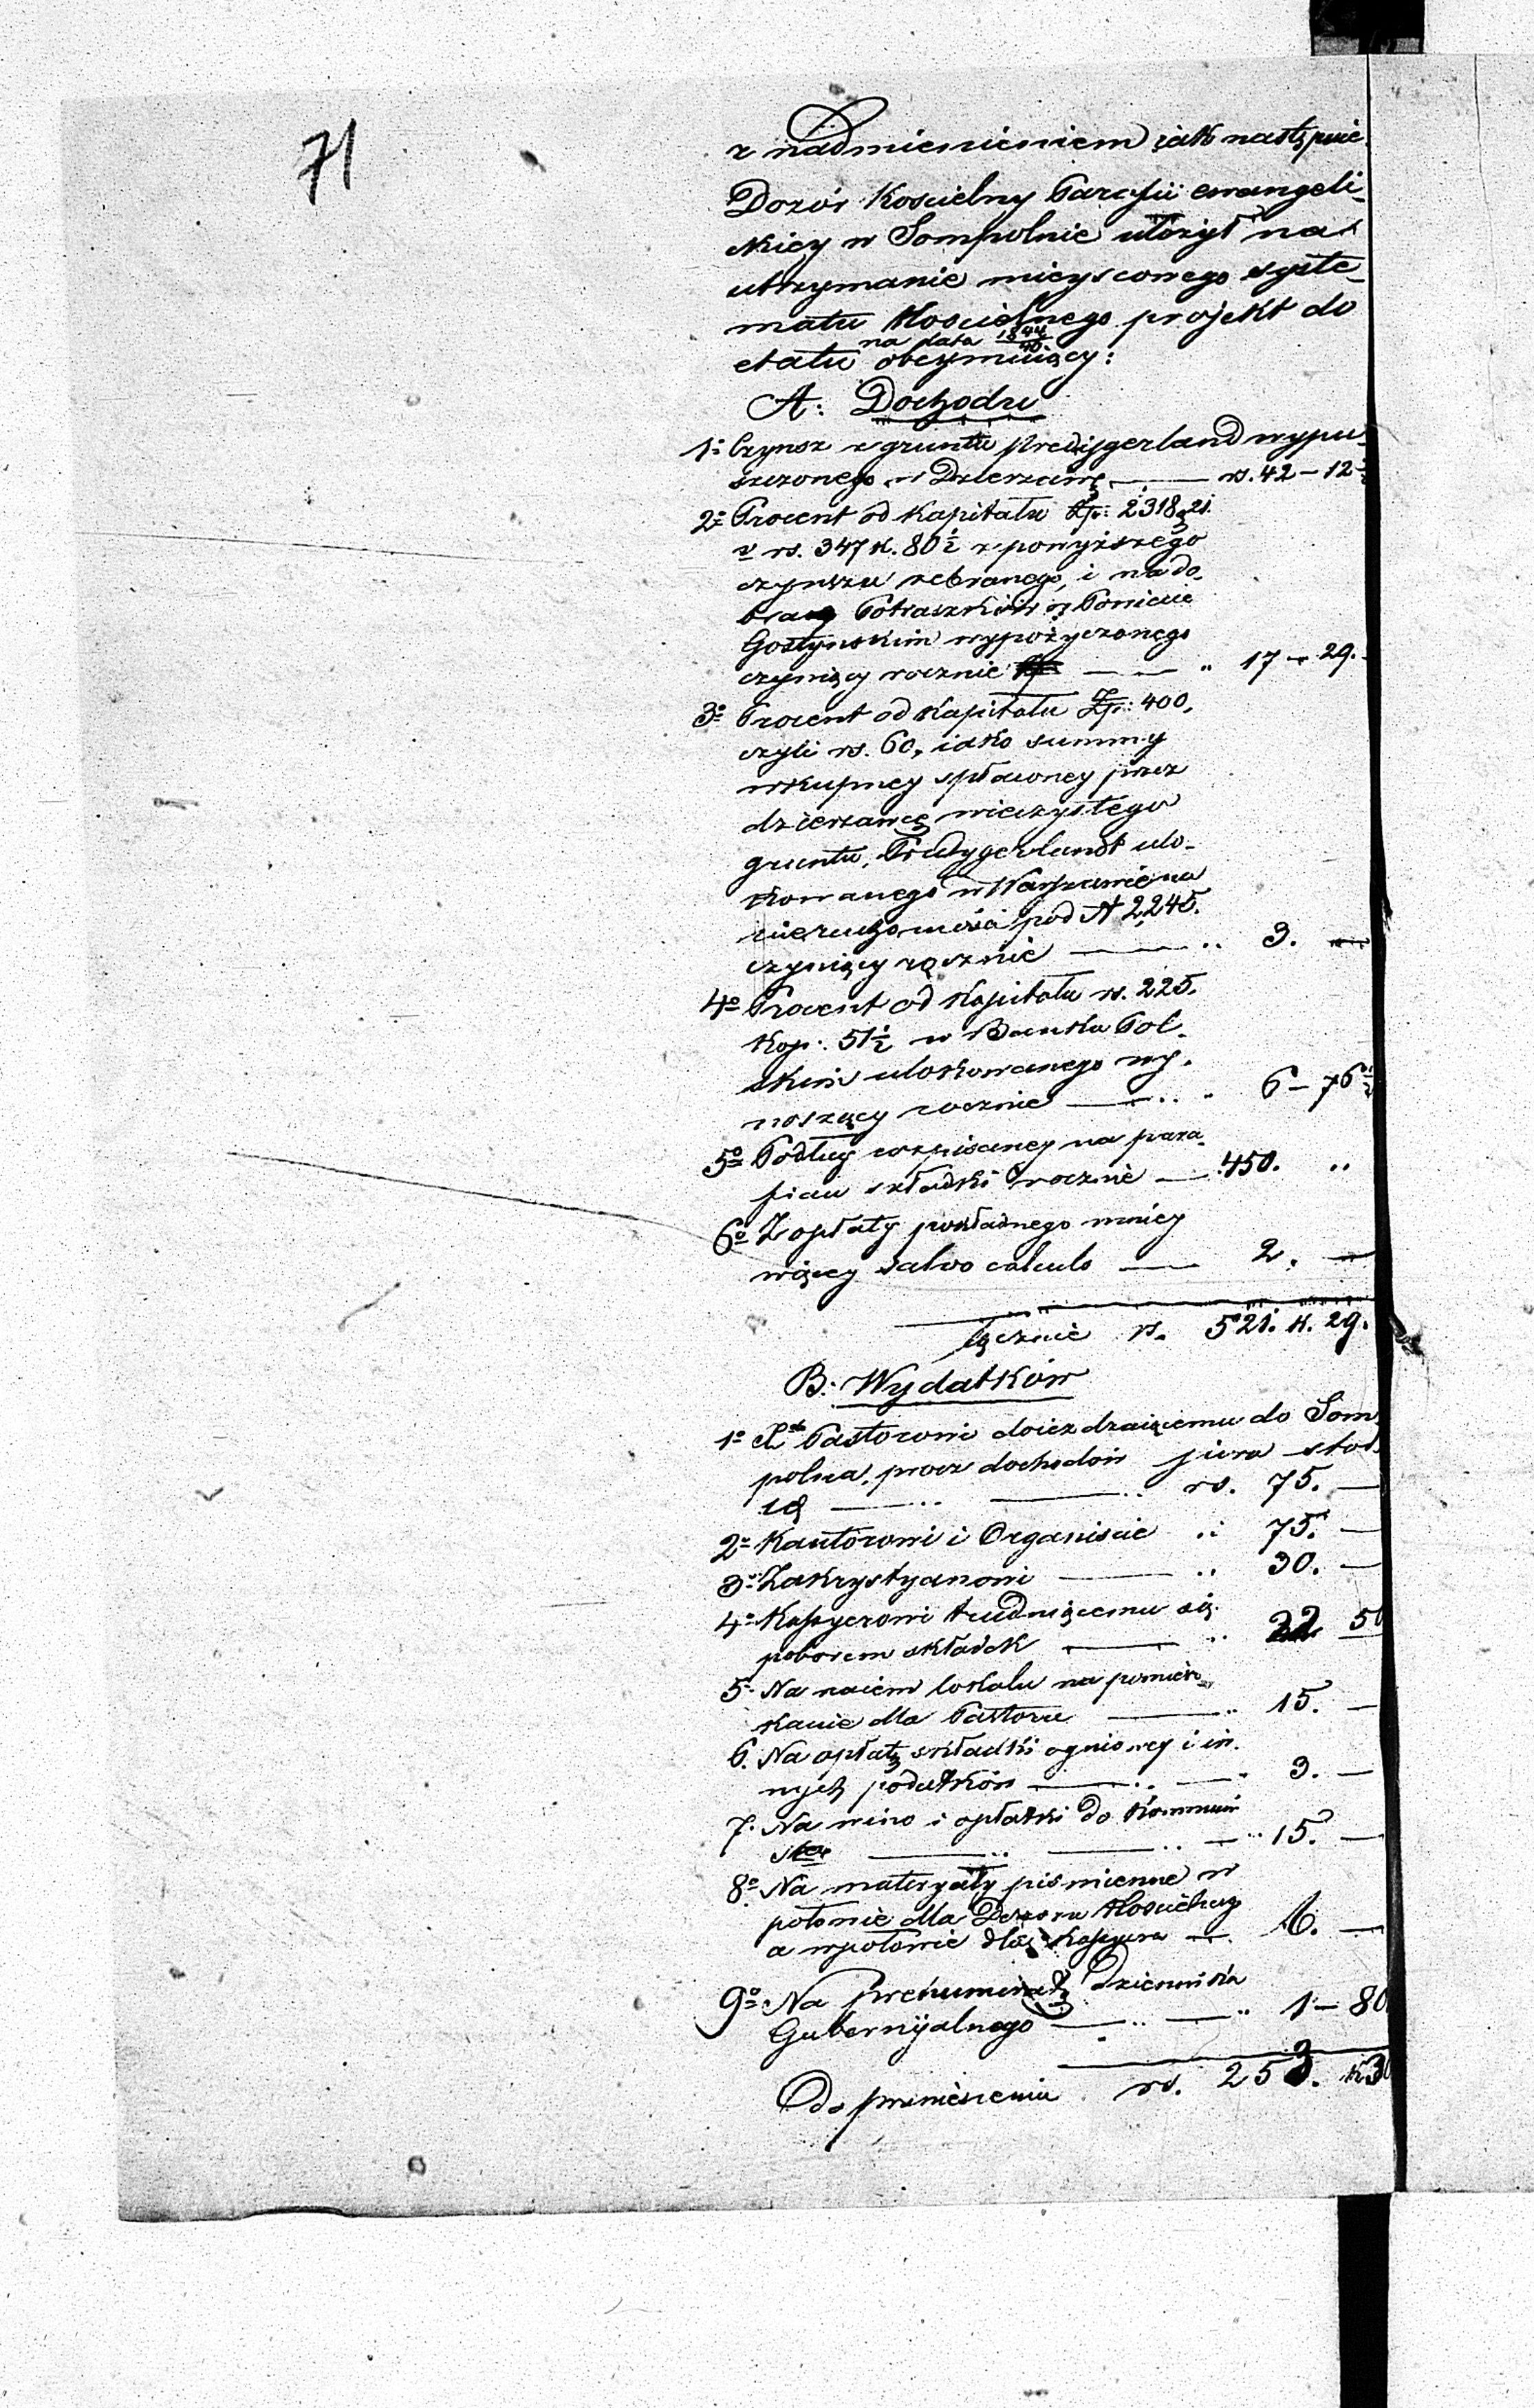 71
z nadmienieniem jak następuie
Dozór Kościelny Parafii ewangeli-
ckiey w Sompolnie ułożył na
utrzymanie mieyscowego syste-
matu Kościelnego projekt do
na lata 18 44/
etatu obeymuiący:
A: Dochodu
1o Czynsz z gruntu Predigerland wypu-
szczonego w Dzierzawę — rs. 42 – 12 ½
2o Procent od Kapitału Zp: 2318 g 21.
v rs. 347 k. 80½ z powyższego
czynszu zebranego, i na do-
brach Potraszków w Powiecie
Gostynskim wypożyczonego
czyniący rocznie — — " 17 – 29.
3o Procent od Kapitału Zp: 400,
czyli rs. 60, iako summy
wkupney spłaconey przez
dzierzawcę wieczystego
gruntu, Predygerlandt ulo-
kowanego w Warszawie na
nieruchomości pod N 2,245.
czyniący rocznie — " 3. —
4o Procent od Kapitału rs. 225.
Kop: 51½ w Banku Pol-
skim ulokowanego wy-
noszący rocznie — " 6 – 76 ½
5o Podług rozpisaney na para-
fian składki rocznie — 450. "
6o Z opłaty pokładnego mniey
więcey salvo calculo — 2. —
łącznie rs. 521. k. 29.
B: Wydatków
1o Pastorowi doieżdzaiącemu do Som-
polna, prócz dochodów jura stol-
ae — " — " rs. 75. —
2o Kantorowi i Organiscie " 75. —
3o Zakrystyanowi — " 30. —
4o Kassyerowi trudniącemu się
poborem składek — " 32 50
5. Na naiem lokalu na pomiesz-
kanie dla Pastora — " 15. —
6. Na opłatę składki ogniowey i in-
nych podatków — " — " 3. —
7. Na wino i opłatki do Kommuni
— " — " — " 15. —
8o Na materyały pismienne w
połowie dla Dozoru Kościelnego
a wpołowie dla Kassyera — 6. —
9o Na prenumeratę Dziennika
Gubernijalnego — " — " 1 – 80
Do przeniesienia rs. 253. k 30